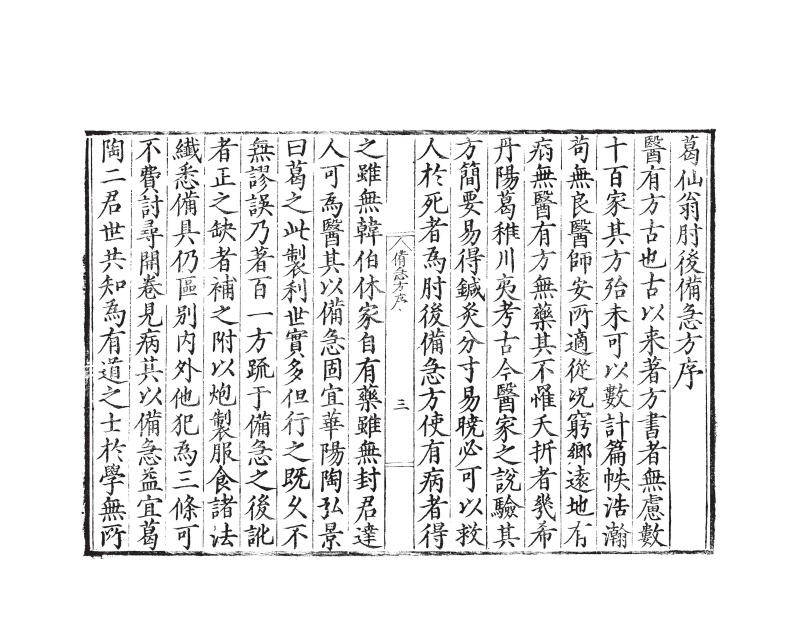 葛仙翁肘後備急方序
醫有方古也古以来著方書者無慮數
十百家其方殆未可以數計篇帙浩瀚
苟無良醫師安所適從况窮鄉遠地有
病無醫有方無藥其不罹夭折者幾希
丹陽葛稚川夷考古今醫家之說驗其
方簡要易得鍼灸分寸易曉必可以救
人於死者爲肘後備急方使有病者得
備急方序
三
之雖無韓伯休家自有藥雖無封君達
人可爲醫其以備急固宜華陽陶弘景
曰葛之此製利世實多但行之既久不
無謬誤乃著百一方疏于備急之後訛
者正之缺者補之附以炮製服食諸法
纖悉備具仍區别内外他犯爲三條可
不費討尋開卷見病其以備急益宜葛
陶二君世共知爲有道之士於學無所